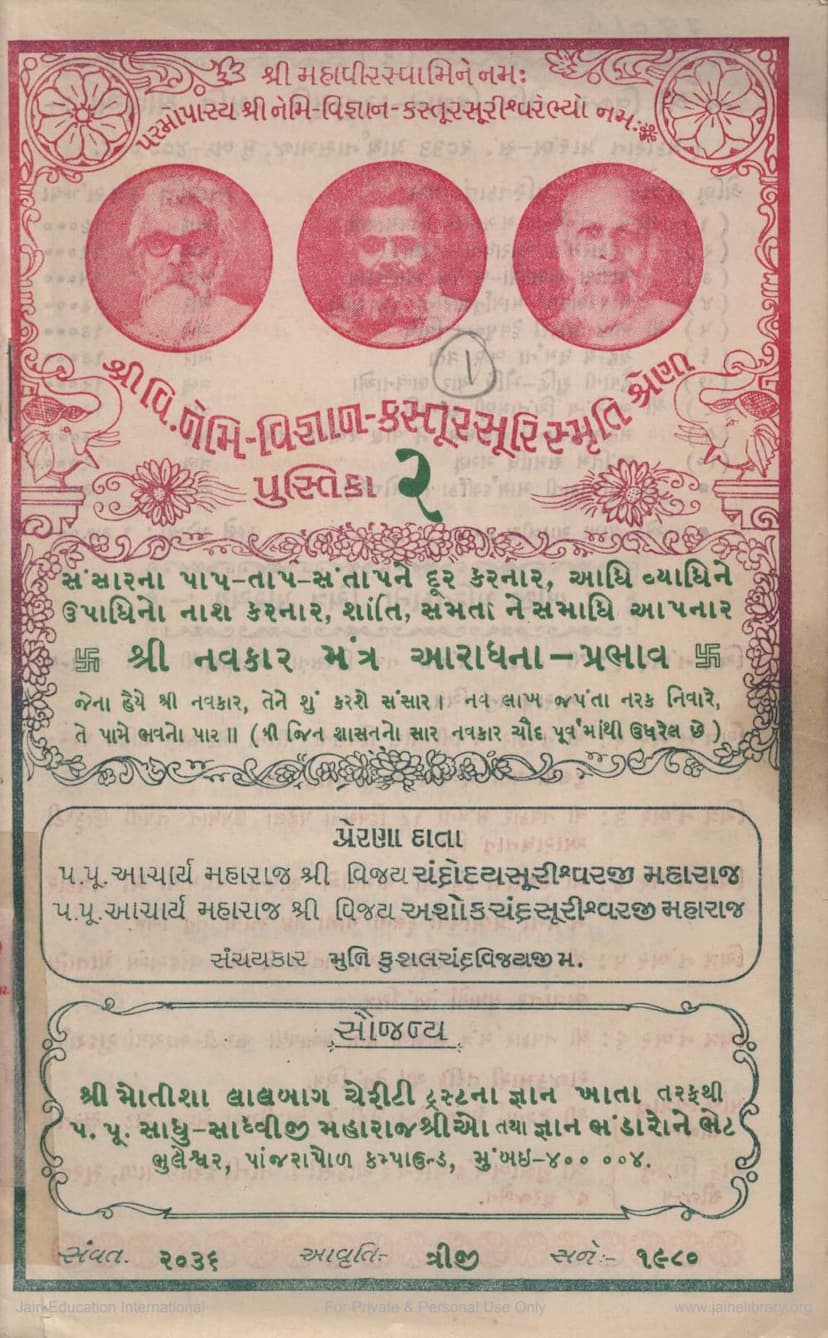 શ્રી મહાવીરસ્વામિને નમઃ
પરમોપાસ્ય શ્રી નેમિ-વિજ્ઞાન-કસ્તૂરસૂરીશ્વરેભ્યો નમઃ
શ્રી વિ. નેમિ-વિજ્ઞાન-કસ્તૂરસૂરિ સ્મૃતિ શ્રેણી
પુસ્તિકા ૨
સંસારના પાપ-તાપ-સંતાપને દૂર કરનાર, આધિ વ્યાધિને
ઉપાધિનો નાશ કરનાર, શાંતિ, સમતા ને સમાધિ આપનાર
卐 શ્રી નવકાર મંત્ર આરાધના-પ્રભાવ 卐
જેના હૈયે શ્રી નવકાર, તેને શું કરશે સંસાર। નવ લાખ જપંતા નરક નિવારે,
તે પામે ભવનો પાર॥ (શ્રી જિન શાસનનો સાર નવકાર ચૌદ પૂર્વમાંથી ઉધરેલ છે)
પ્રેરણા દાતા
પ.પૂ.આચાર્ય મહારાજ શ્રી વિજય ચંદ્રોદયસૂરીશ્વરજી મહારાજ
પ.પૂ.આચાર્ય મહારાજ શ્રી વિજય અશોકચંદ્રસૂરીશ્વરજી મહારાજ
સંચયકાર મુનિ કુશલચંદ્રવિજયજી મ.
સૌજન્ય
શ્રી મોતીશા લાલબાગ ચેરીટી ટ્રસ્ટના જ્ઞાન ખાતા તરફથી
પ. પૂ. સાધુ-સાધ્વીજી મહારાજશ્રીઓ તથા જ્ઞાન ભંડારોને ભેટ
ભુલેશ્વર, પાંજરાપોળ કમ્પાઉન્ડ, મુંબઇ-૪૦૦ ૦૦૪.
સંવત. ૨૦૩૬ આવૃતિ- ત્રીજી સને:- ૧૯૮૦
Jain Education International For Private & Personal Use Only www.jainelibrary.org